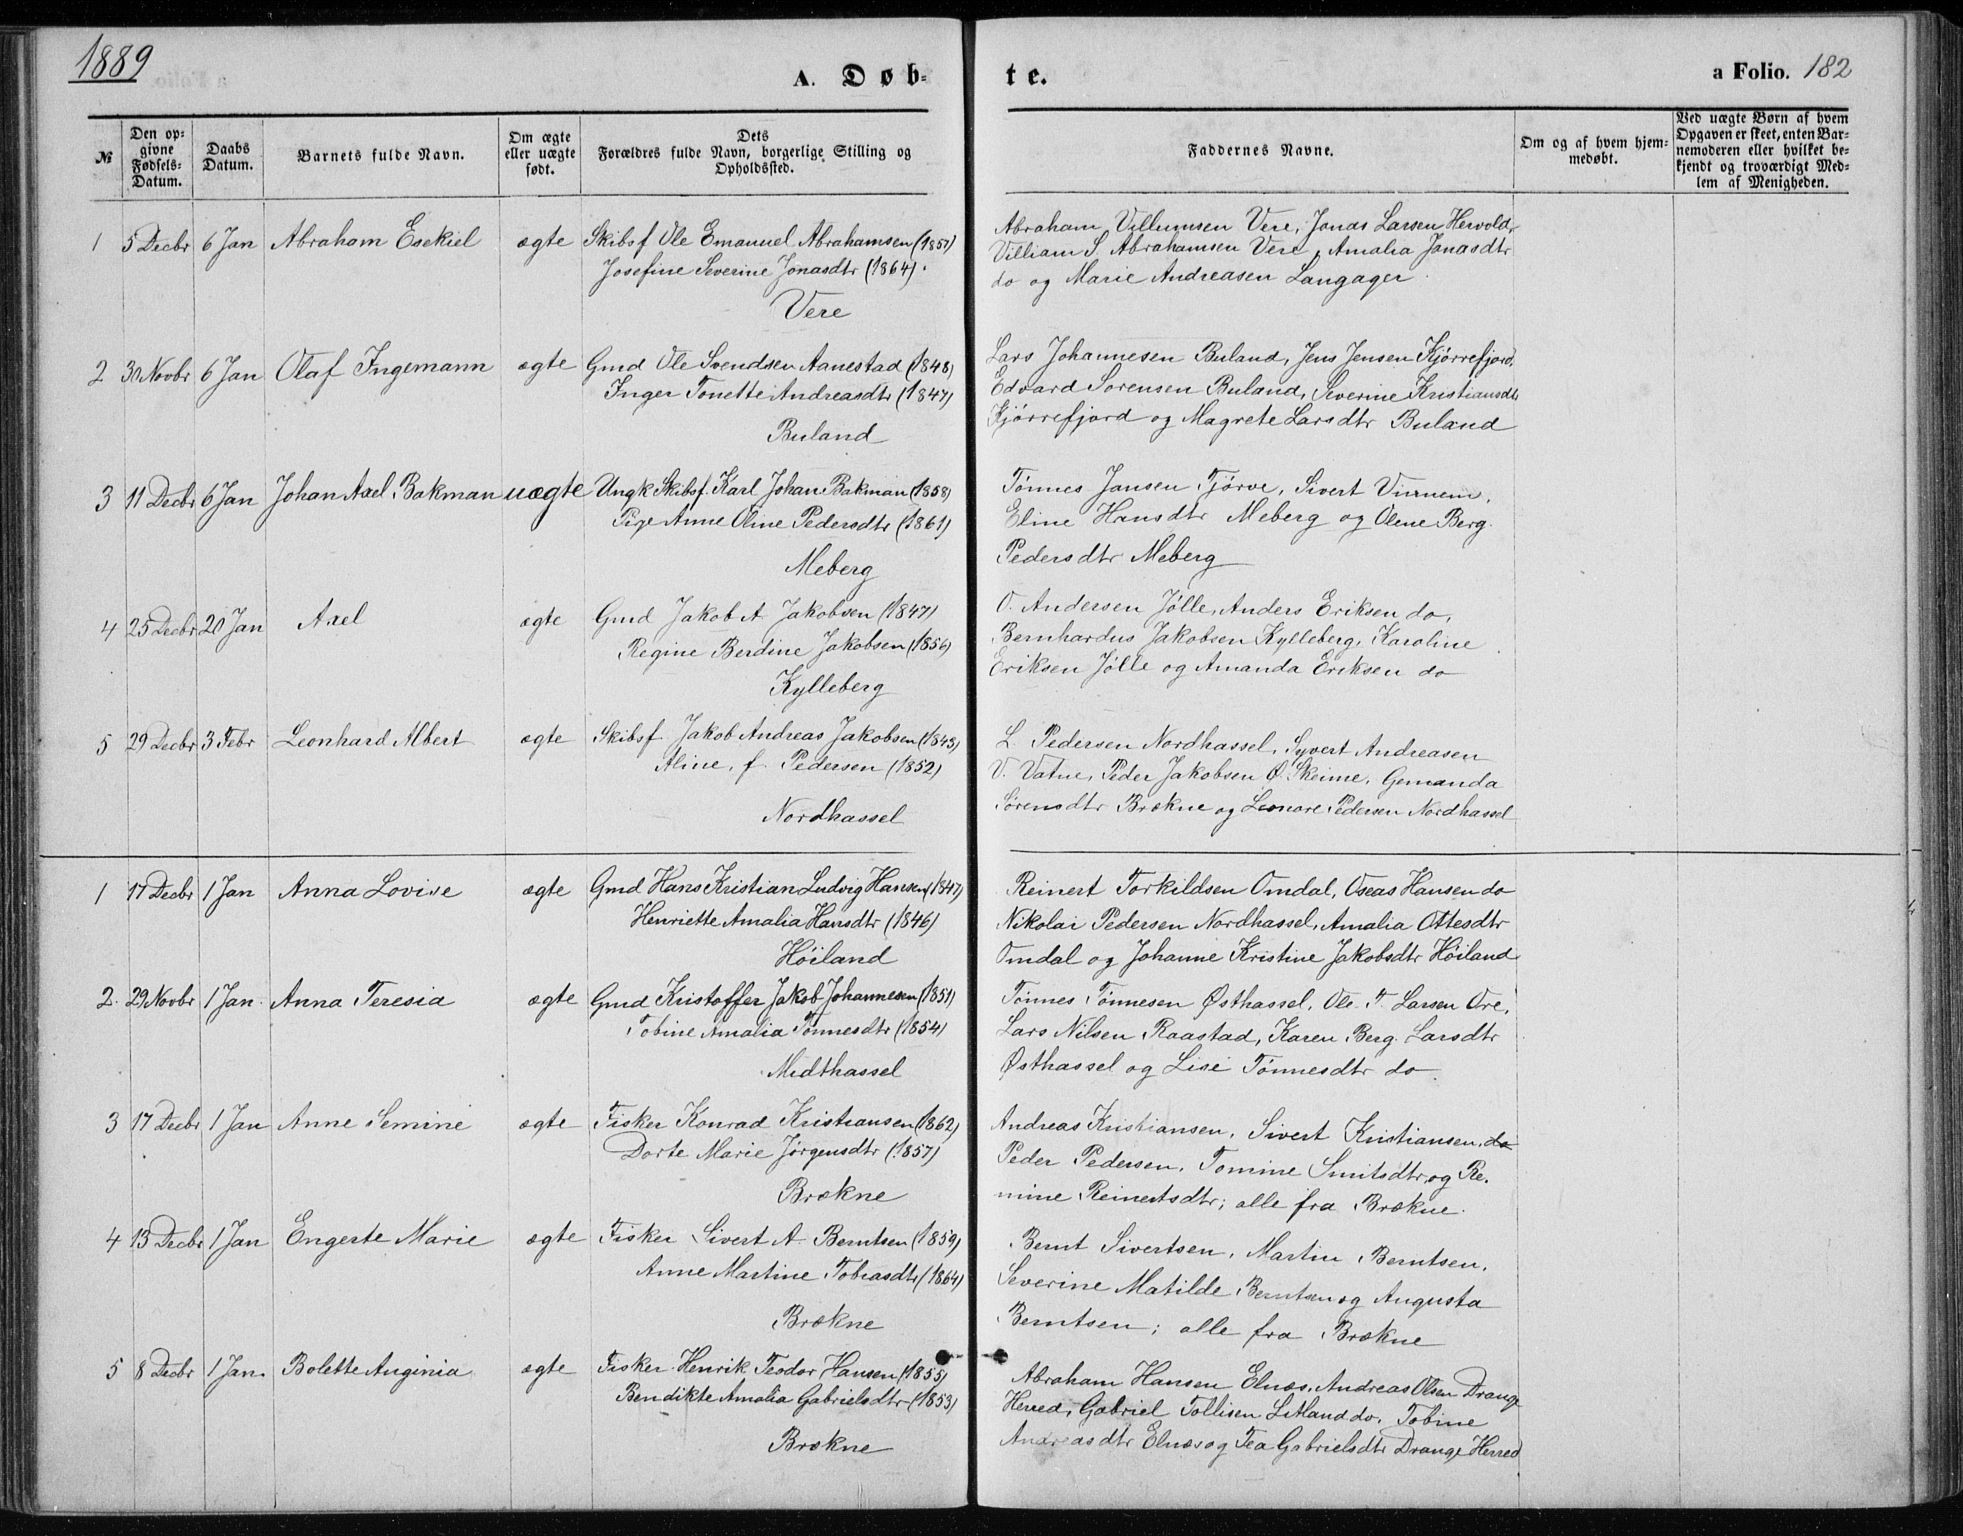 1889
A. Døb-
te.
a Folio. 182
№
Den op-
givne
Fødsels-
Datum.
Daabs
Datum.
Barnets fulde Navn.
Om ægte
eller uægte
født.
Dets
Forældres fulde Navn, borgerlige Stilling og
Opholdssted.
Faddernes Navne.
Om og af hvem hjem-
medøbt.
Ved uægte Børn af hvem
Opgaven er skeet, enten Bar-
nemoderen eller hvilket be-
kjendt og troværdigt Med-
lem af Menigheden.
1 5 Decbr 6 Jan Abraham Esekiel ægte Skibsf Ole Emanuel Abrahamsen (1857)
Josefine Severine Jonasdtr (1864).
Vere
Abraham Villumsen Vere, Jonas Larsen Hervold,
Villiam S. Abrahamsen Vere, Amalia Jonasdtr
do og Marie Andreasen Langager
2 30 Novbr 6 Jan Olaf Ingemann ægte Gmd Ole Svendsen Aanestad (1848)
Inger Tonette Andreasdtr (1847)
Buland
Lars Johannesen Buland, Jens Jensen Kjørrefjord,
Edvard Sørensen Buland, Severine Kristiansdtr
Kjørrefjord og Magrete Larsdtr Buland
3 11 Decbr 6 Jan Johan Axel Bakman uægte Ungk Skibsf. Karl Johan Bakman (1858)
Pige Anne Oline Pedersdtr (1861)
Meberg
Tønnes Jansen Tjørve, Sivert
Eline Hansdtr Meberg og Olene Berg.
Pedersdtr Meberg
4 25 Decbr 20 Jan Axel ægte Gmd Jakob A Jakobsen (1847)
Regine Berdine Jakobsen (1856)
Kylleberg
O. Andersen Jølle, Anders Eriksen do,
Bernhardus Jakobsen Kylleberg, Karoline
Eriksen Jølle og Amanda Eriksen do
5 29 Decbr 3 Febr Leonhard Albert ægte Skibsf Jakob Andreas Jakobsen (1843)
Aline, f. Pedersen (1852)
Nordhassel
L. Pedersen Nordhassel, Syvert Andreasen
V. Vatne, Peder Jakobsen Ø. Skeime, Gemanda
Sørensdtr Brækne og Leonore Pedersen Nordhassel
1 17 Decbr 1 Jan Anna Lovise ægte Gmd Hans Kristian Ludvig Hansen (1847)
Henriette Amalia Hansdtr (1846)
Høiland
Reinert Torkildsen Omdal, Oseas Hansen do
Nikolai Pedersen Nordhassel, Amalia Ottesdtr
Omdal og Johanne Kristine Jakobsdtr Høiland
2. 29 Novbr 1 Jan. Anna Teresia ægte Gmd Kristoffer Jakob Johannesen (1851)
Tobine Amalia Tønnesdtr (1854)
Midthassel
Tønnes Tønnesen Østhassel, Ole T. Larsen Ore,
Lars Nilsen Raastad, Karen Berg. Larsdtr
Østhassel og Lise Tønnesdtr do
3 17 Decbr 1 Jan Anne Semine ægte Fisker Konrad Kristiansen (1862)
Dorte Marie Jørgensdtr (1857)
Brækne
Andreas Kristiansen, Sivert Kristiansen, do
Peder Pedersen, Tomine Smitsdtr og Re-
mine Reinertsdtr; alle fra Brækne.
4 13 Decbr 1 Jan Engerte Marie ægte Fisker Sivert A. Berntsen (1859)
Anne Martine Tobiasdtr (1864)
Brækne
Bernt Sivertsen, Martin Berntsen,
Severine Matilde Berntsen og Augusta
Berntsen; alle fra Brækne
5 8 Decbr 1 Jan. Bolette Auginia ægte Fisker Henrik Teodor Hansen (1855)
Bendikte Amalia Gabrielsdtr (1853)
Brækne
Abraham Hansen Elnæs, Andreas Olsen Drange
Herred, Gabriel Tollisen Litland do, Tobine
Andreasdtr Elnæs og Tea Gabrielsdtr Drange Herred